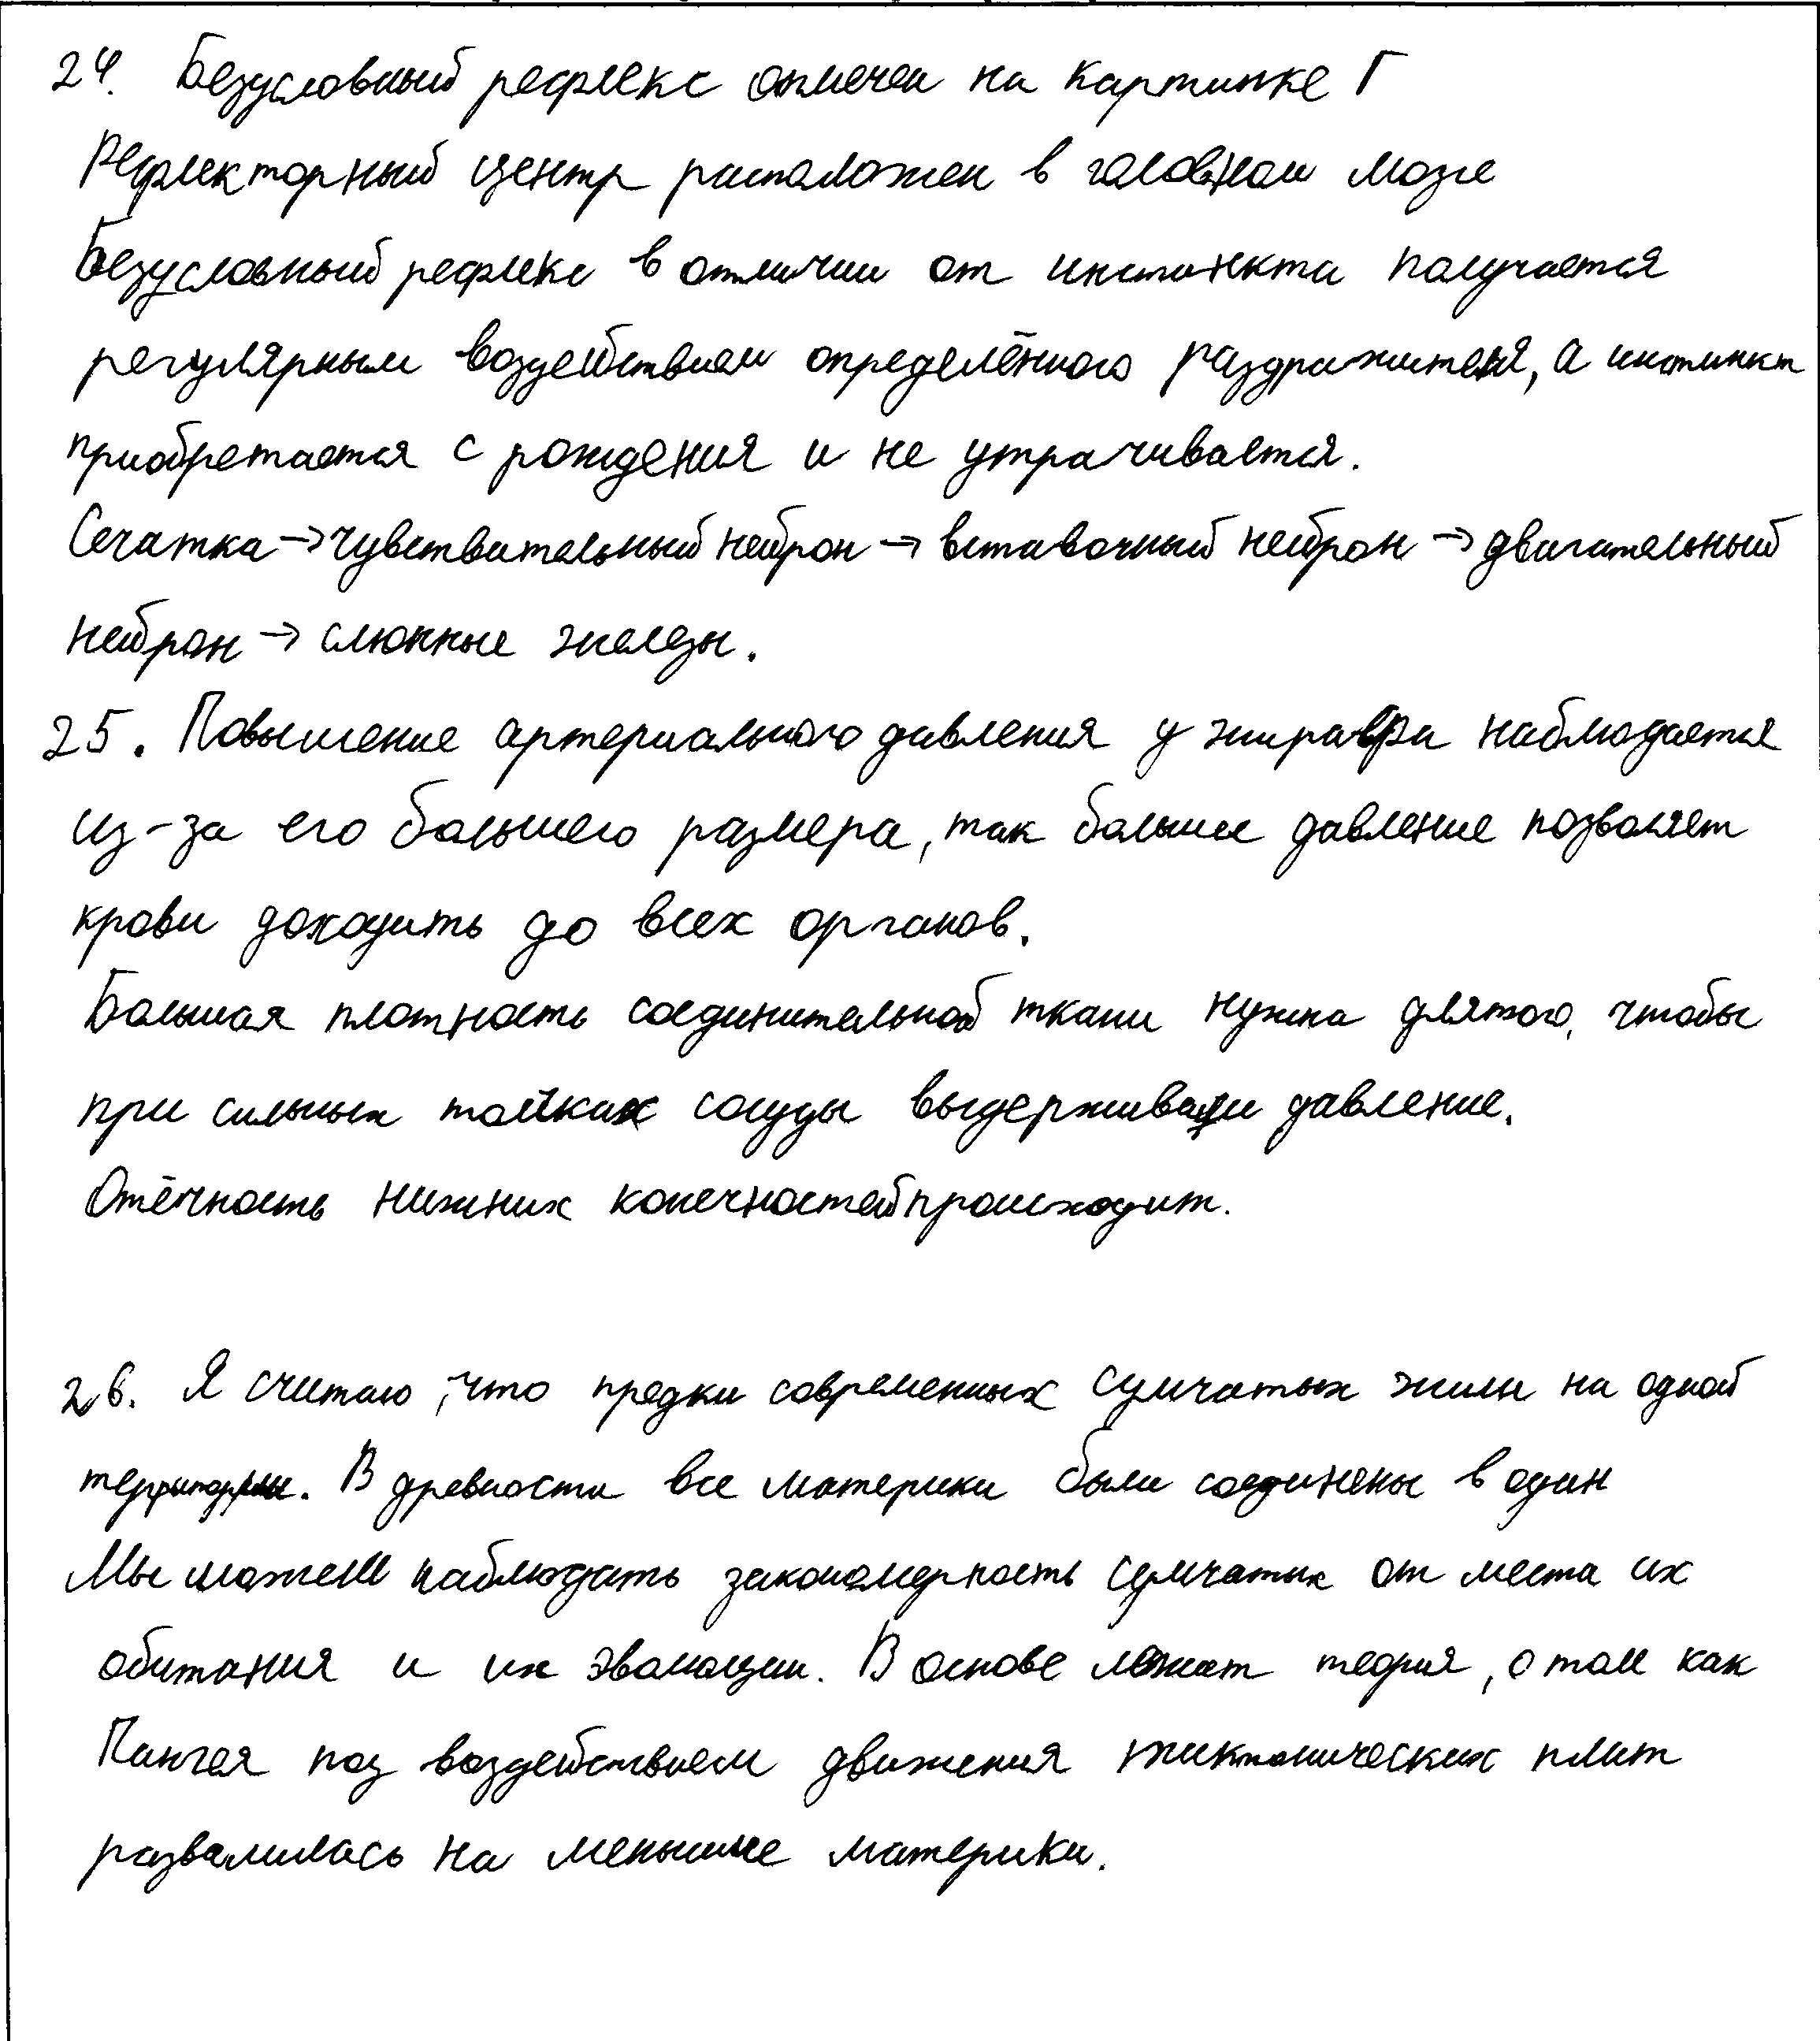 24. Безусловный рефлекс отмечен на картинке Г
Рефлекторный центр расположен в головном мозге
Безусловный рефлекс в отличии от инстинкта получается
регулярным воздействием определённого раздражителя, а инстинкт
приобретается с рождения и не утрачивается.
Сечатка → чувствительный нейрон → вставочный нейрон → двигательный
нейрон → слюнные железы.
25. Повышение артериального давления у жирафа наблюдается
из-за его большего размера, так большее давление позволяет
крови доходить до всех органов.
Большая плотность соединительной ткани нужна для того, чтобы
при сильных толчках сосуды выдерживали давление.
Отёчность нижних конечностей происходит.
26. Я считаю, что предки современных сумчатых жили на одной
территории. В древности все материки были соединены в один
Мы можем наблюдать закономерность сумчатых от места их
обитания и их эволюции. В основе лежит теория, о том как
Пангея под воздействием движения тиктонических плит
развалилась на меньшие материки.